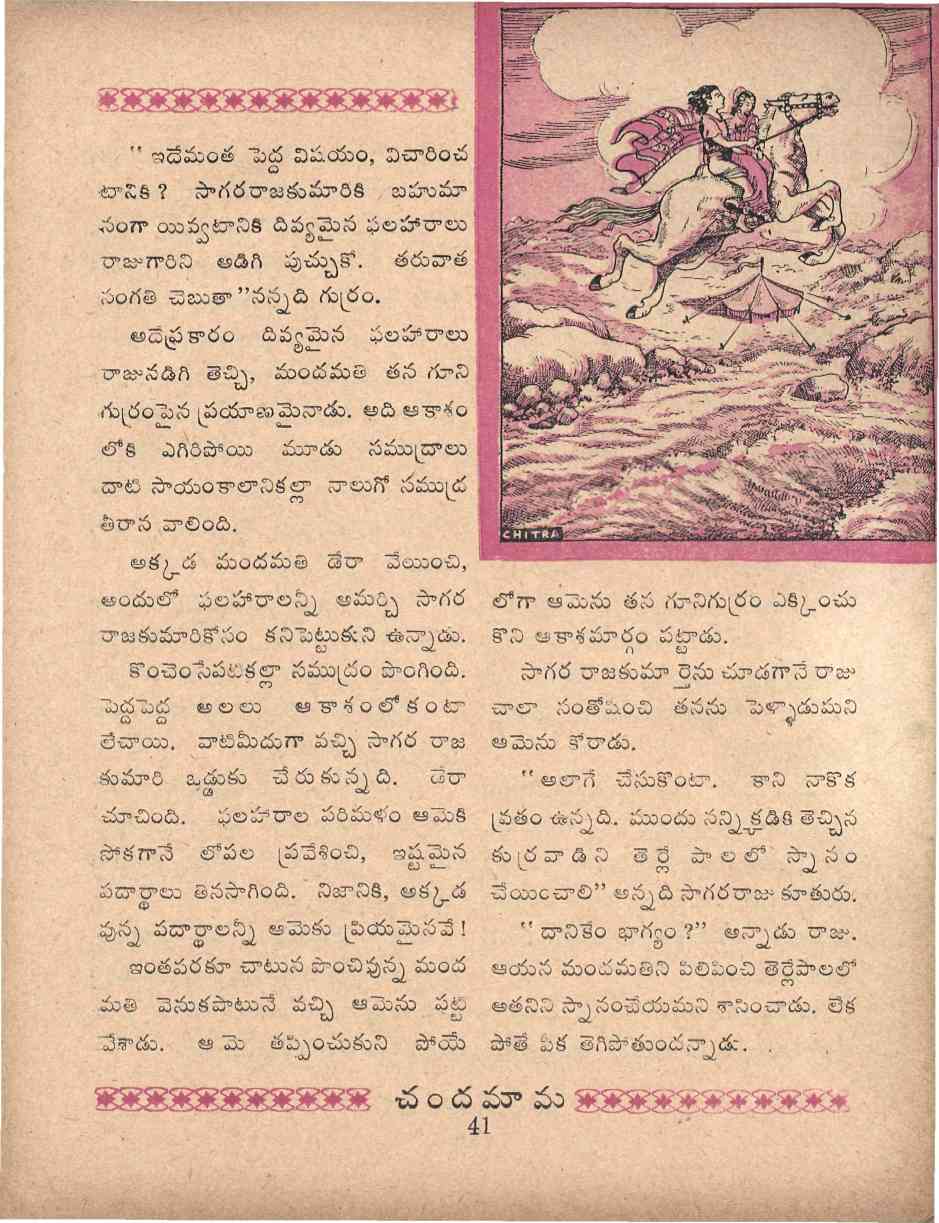 “ ఇదేమంత పెద్ద విషయం, విచారించ
టానికి ? సాగరరాజకుమారికి బహుమా
నంగా యివ్వటానికి దివ్యమైన ఫలహారాలు
రాజుగారిని అడిగి పుచ్చుకో. తరువాత
సంగతి చెబుతా”నన్నది గుర్రం.
అదేప్రకారం దివ్యమైన ఫలహారాలు
రాజునడిగి తెచ్చి, మందమతి తన గూని
గుర్రంపైన ప్రయాణమైనాడు. అది ఆకాశం
లోకి ఎగిరిపోయి మూడు సముద్రాలు
దాటి సాయంకాలానికల్లా నాలుగో సముద్ర
తీరాన వాలింది.
అక్కడ మందమతి డేరా వేయించి,
అందులో ఫలహారాలన్నీ అమర్చి సాగర
రాజకుమారికోసం కనిపెట్టుకుని ఉన్నాడు.
కొంచెంసేపటికల్లా సముద్రం పొంగింది.
పెద్దపెద్ద అలలు ఆకాశంలోకంటా
లేచాయి. వాటిమీదుగా వచ్చి సాగర రాజ
కుమారి ఒడ్డుకు చేరుకున్నది. డేరా
చూచింది. ఫలహారాల పరిమళం ఆమెకి
సోకగానే లోపల ప్రవేశించి, ఇష్టమైన
పదార్థాలు తినసాగింది. నిజానికి, అక్కడ
వున్న పదార్థాలన్నీ ఆమెకు ప్రియమైనవే !
ఇంతవరకూ చాటున పొంచివున్న మంద
మతి వెనుకపాటునే వచ్చి ఆమెను పట్టి
వేశాడు. ఆమె తప్పించుకుని పోయే
CHITRA
లోగా ఆమెను తన గూనిగుర్రం ఎక్కించు
కొని ఆకాశమార్గం పట్టాడు.
సాగర రాజకుమార్తెను చూడగానే రాజు
చాలా సంతోషించి తనను పెళ్ళాడుమని
ఆమెను కోరాడు.
“అలాగే చేసుకొంటా. కాని నాకొక
వ్రతం ఉన్నది. ముందు నన్నిక్కడికి తెచ్చిన
కుర్రవాడిని తెర్లే పాలలో స్నానం
చేయించాలి” అన్నది సాగరరాజు కూతురు.
“ దానికేం భాగ్యం ?” అన్నాడు రాజు.
ఆయన మందమతిని పిలిపించి తెర్లేపాలలో
అతనిని స్నానంచేయుమని శాసించాడు. లేక
పోతే పీక తెగిపోతుందన్నాడు.
చందమామ
41